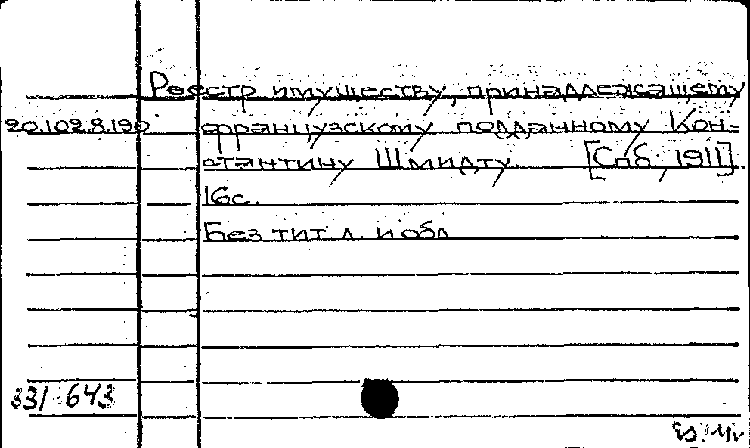 Реестр имуществу, принадлежащему
20.102.8.190 французскому подданному Кон-
стантину Шмидту. [Спб, 1911].
16с.
Без тит. л. и обл.
331 643